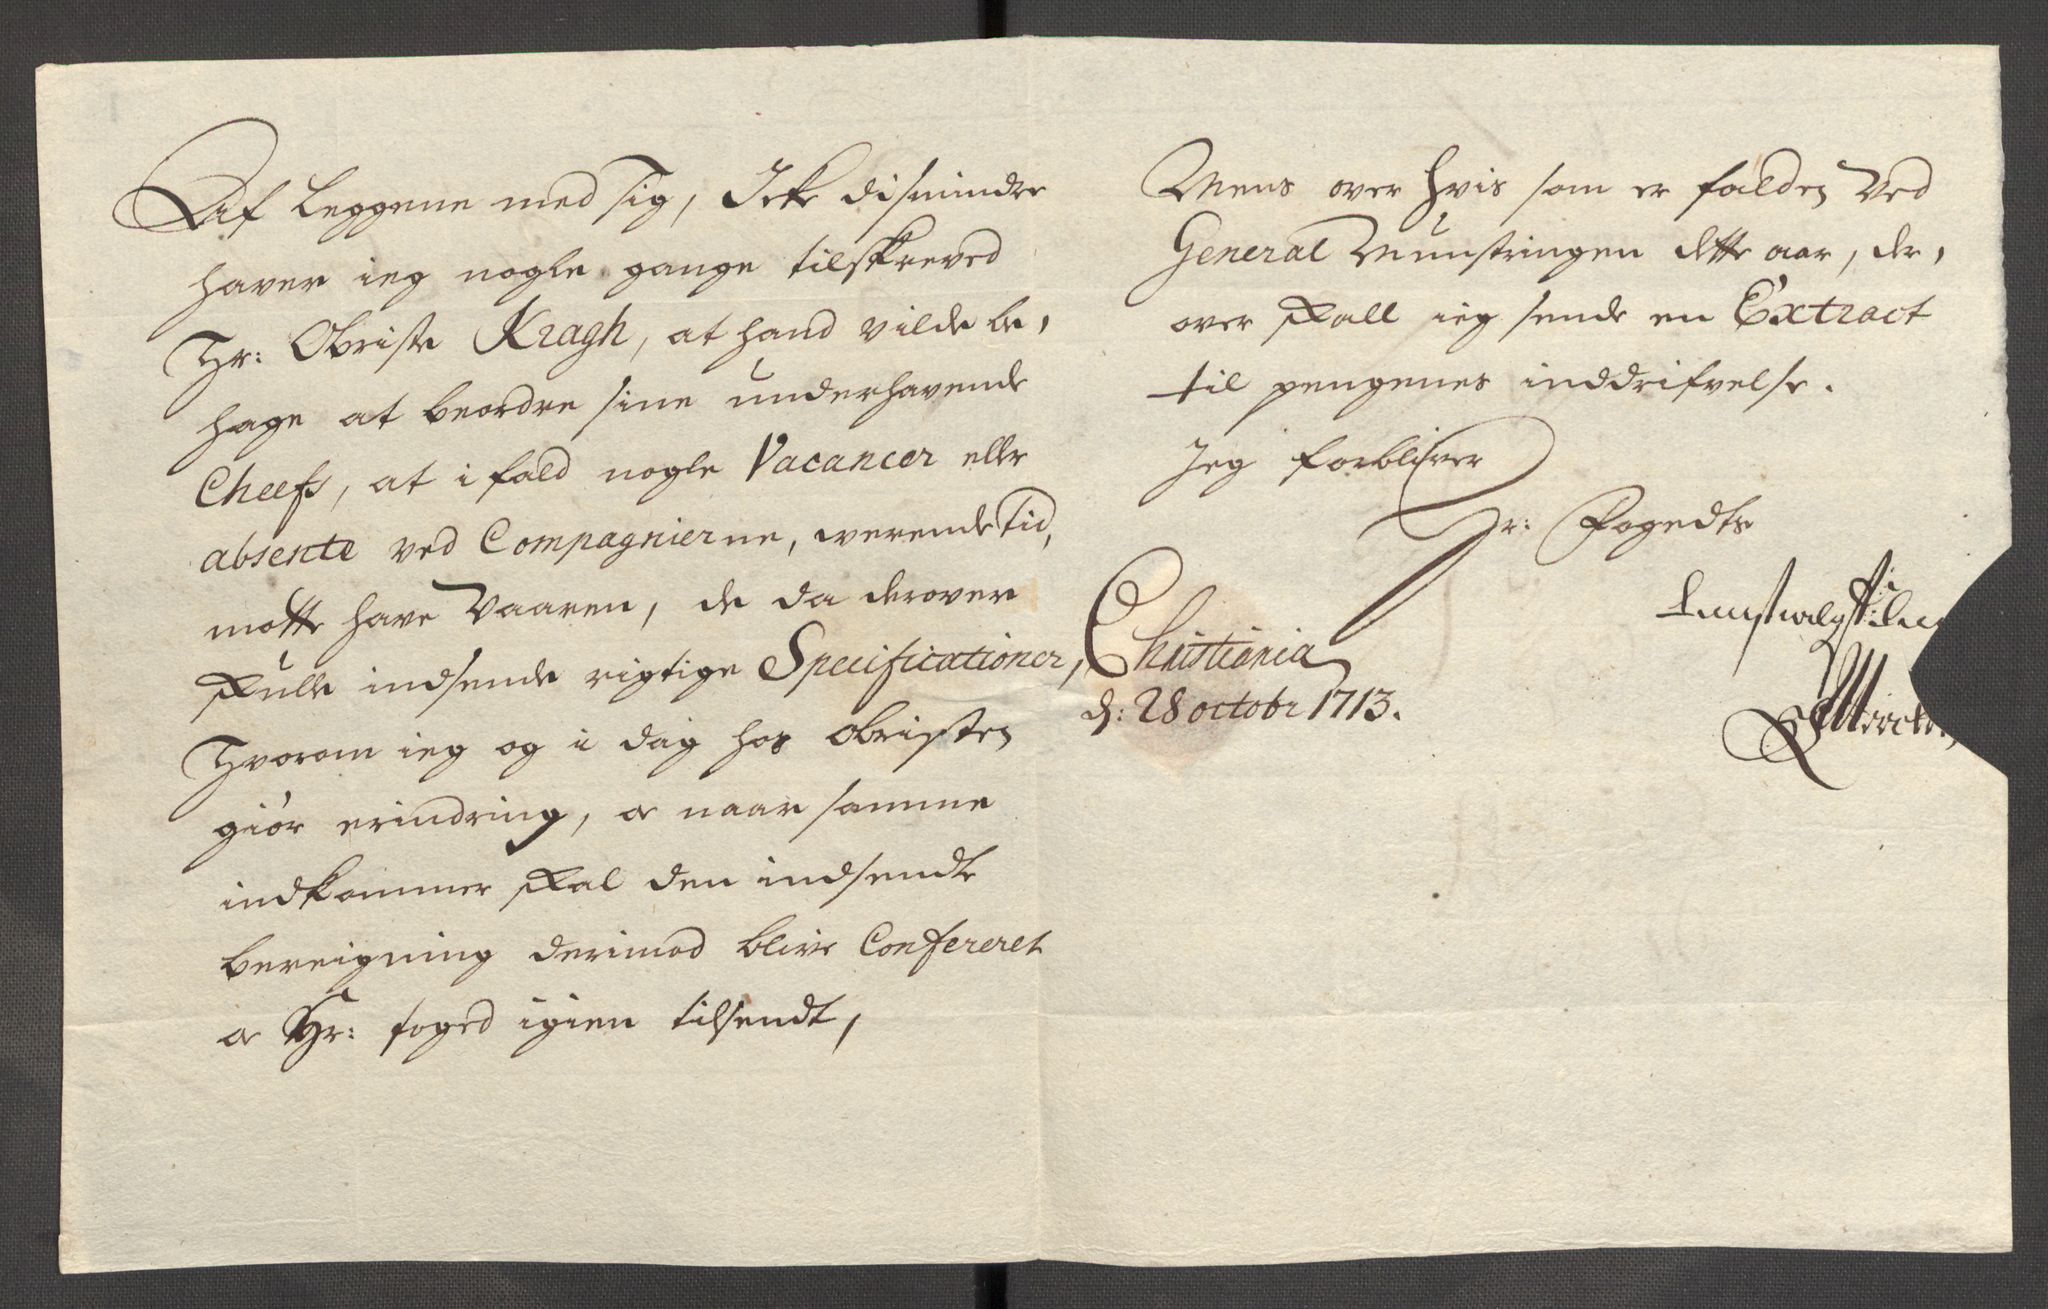 af Leggene med sig, Icke dismindre
haver ieg nogle gange tilskreved
Hr: Obriste Kragh, at hand vilde be,
hage at beordre sine underhavende
Cheefs, at i fald nogle Vacancer eller
absente ved Compagnierne, werende tid,
motte have Vaaren, de da derover
skulle indsende rigtige Specificationer,
Hvorom ieg og i dag hos Obristen
giør erindring, og naar samme
indkommer skal den indsendte
bereigning derimod blive Confereret
og Hr: foged igien tilsendt,
Mens over hvis som er falden ved
General Munstringen dette aar, der,
over skall ieg sende en Extract
til pengenes inddrifvelse.
Jeg forbliver
Hr: Fogedts
Christiania
d: 28 octobr 1713.